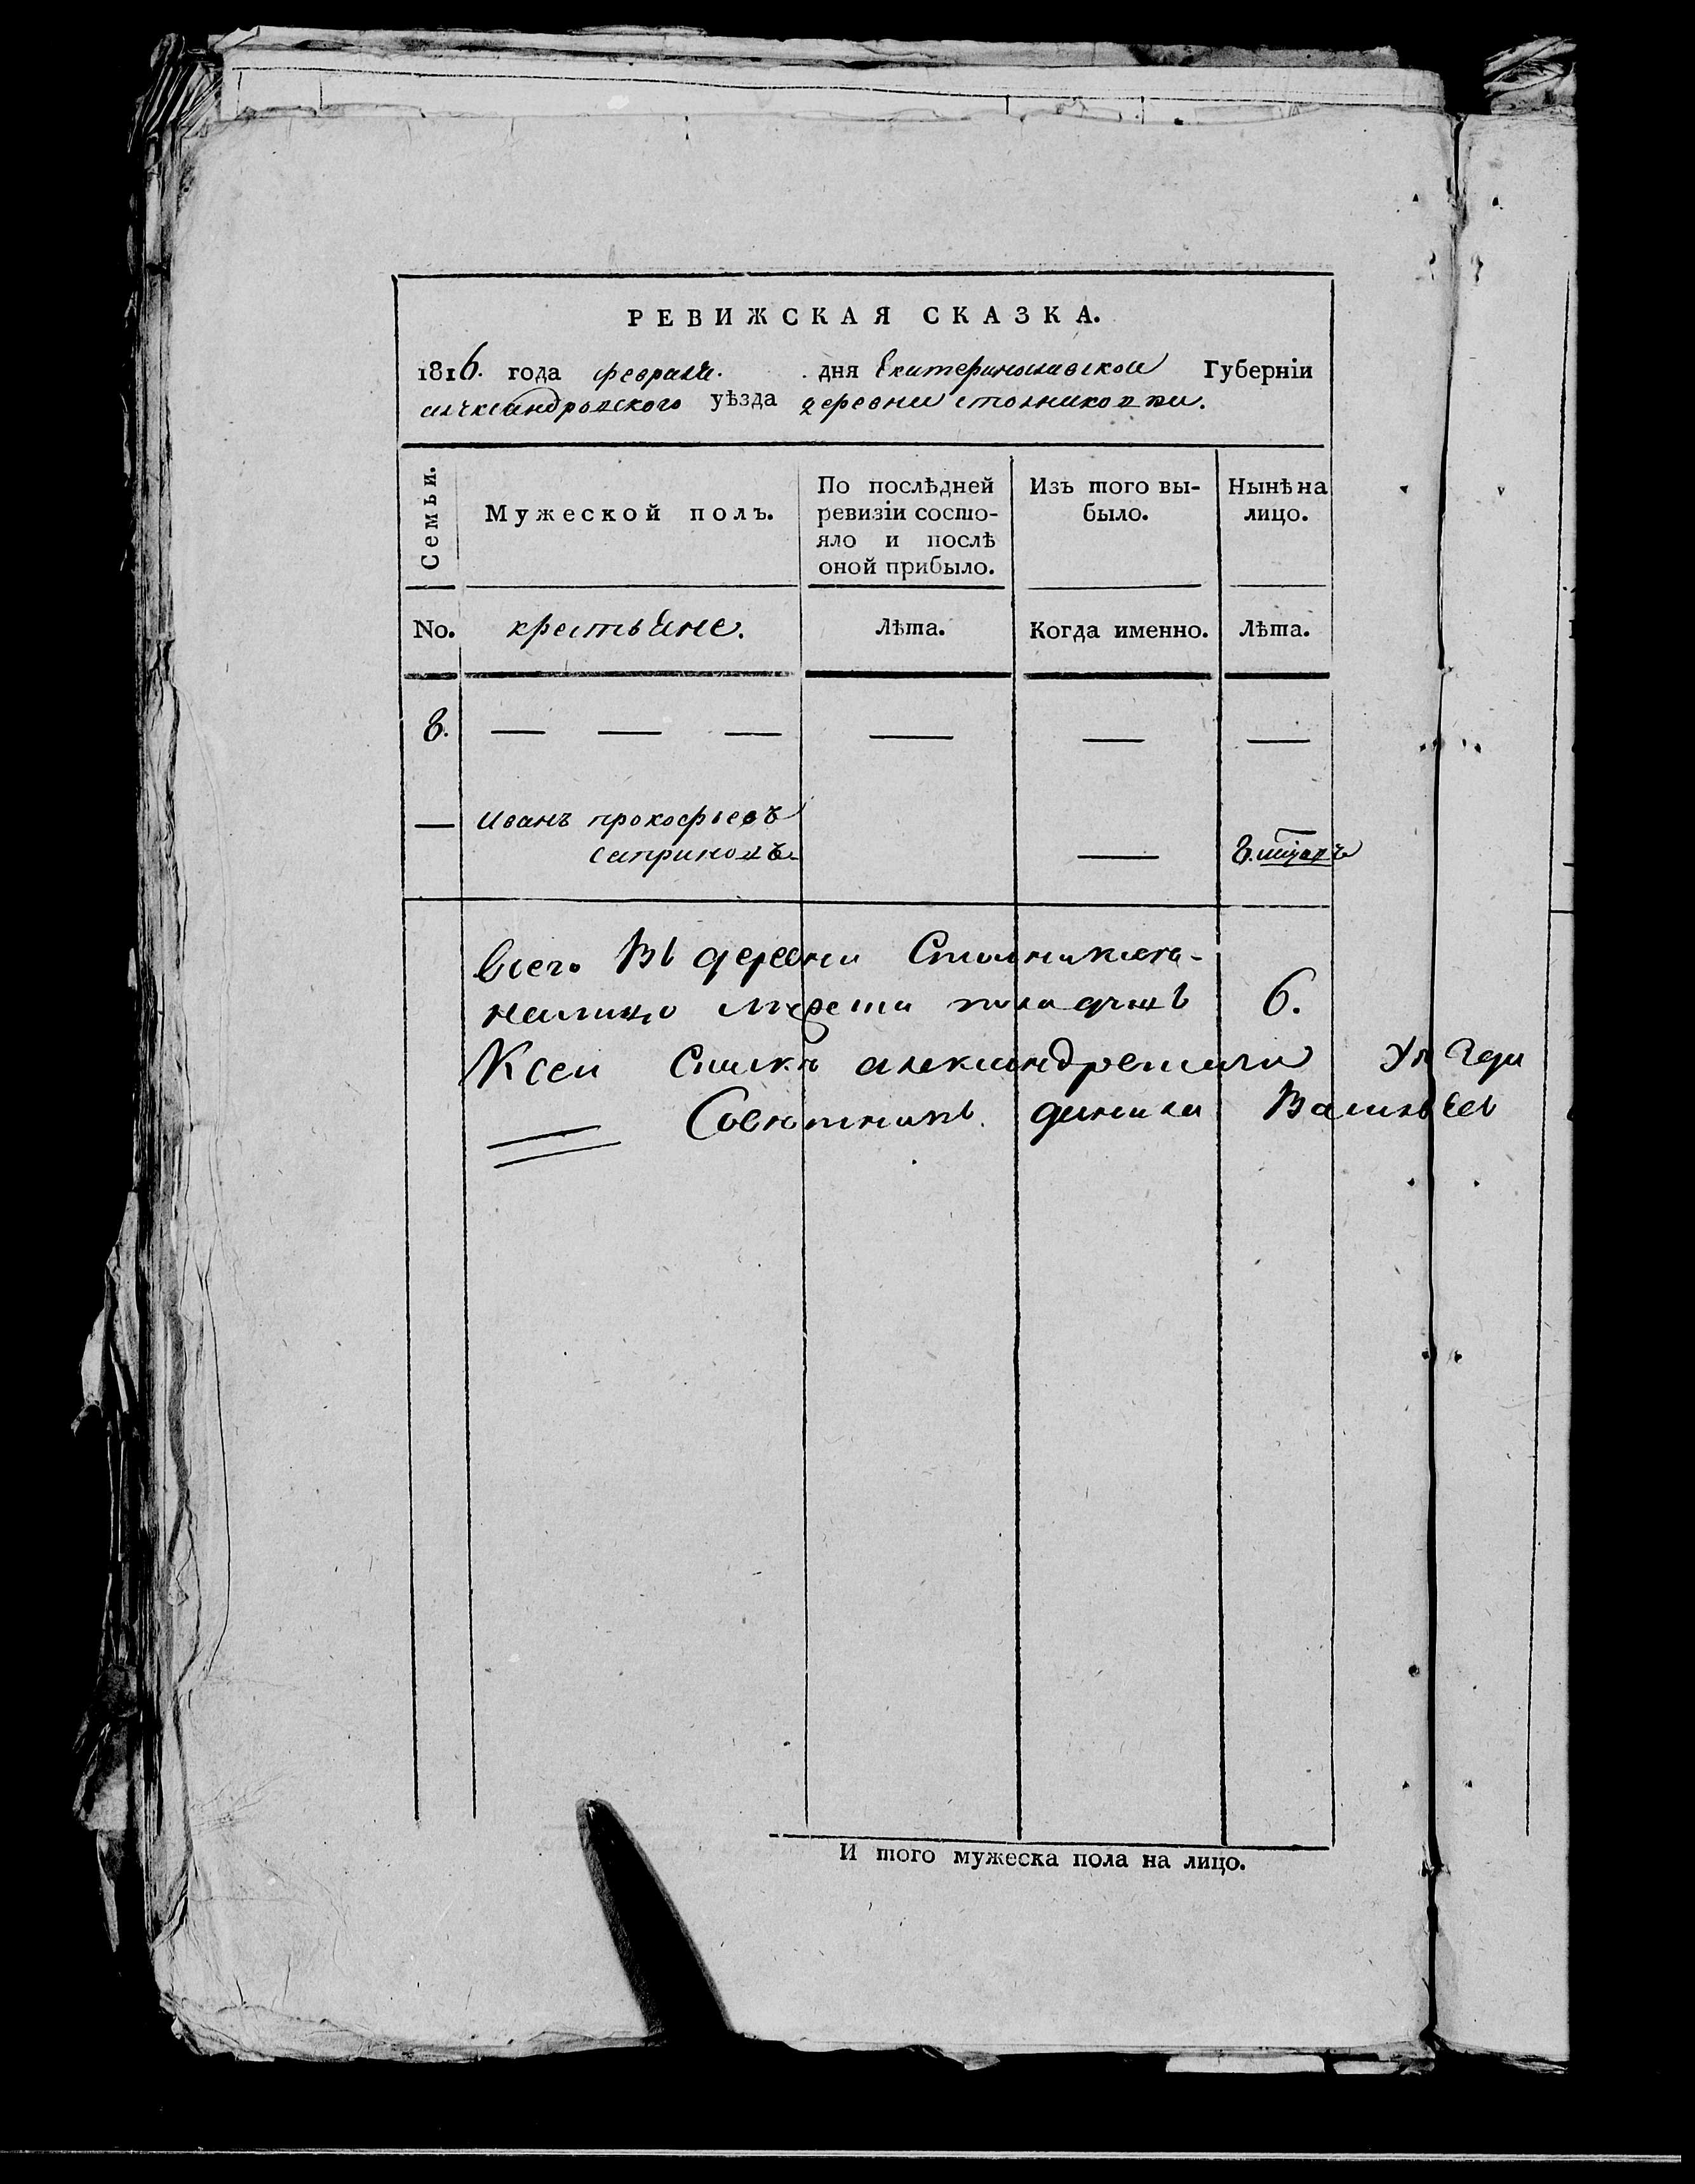 РЕВИЖСКАЯ СКАЗКА.
1816. года февраля. дня Екатеринославской Губерніи
александровского уѣзда деревни столниковки.
Семьи.
Мужеской полъ.
По послѣдней
ревизіи состо-
яло и послѣ
оной прибыло.
Изъ того вы-
было.
Нынѣ на
лицо.
No. крестьяне. Лѣта. Когда именно. Лѣта.
8. — — — — — —
— Иванъ прокофьевъ
— 8.
всего въ деревни
налицо пола душъ 6.
К сей
Советникъ данила Васильевъ
И того мужеска пола на лицо.